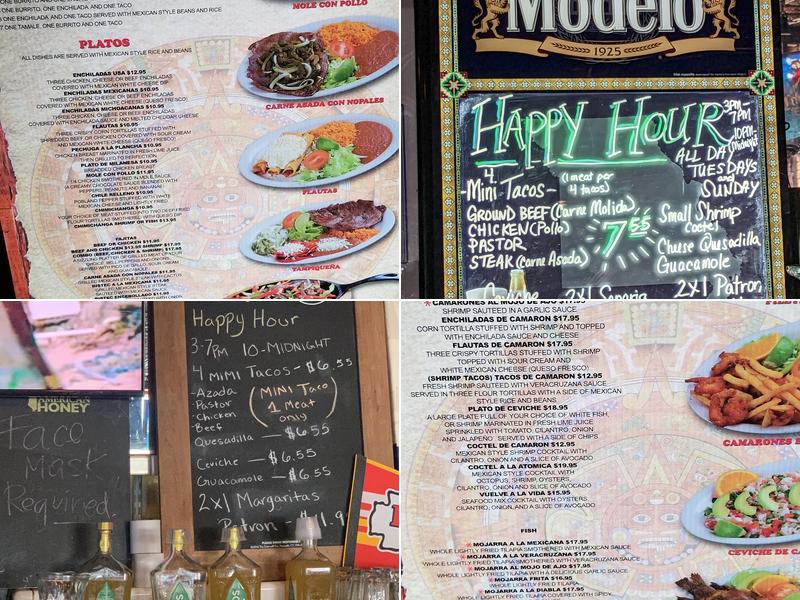 ONE BURRITO, ONE ENCHILADA AND ONE TACO
7 ONE TAMALE, ONE BURRITO AND ONE TACO
MOLE CON POLLO
PLATOS
ALL DISHES ARE SERVED WITH MEXICAN STYLE RICE AND BEANS
ENCHILADAS USA $12.95
THREE CHICKEN, CHEESE OR BEEF ENCHILADAS
COVERED WITH MEXICAN WHITE CHEESE DIP
ENCHILADAS MEXICANAS $10.95
THREE CHICKEN, CHEESE OR BEEF ENCHILADAS
COVERED WITH MEXICAN WHITE CHEESE (QUESO FRESCO)
ENCHILADAS MICHOACANAS $10.95
THREE CHICKEN, CHEESE OR BEEF ENCHILADAS
COVERED WITH ENCHILADA SAUCE AND MELTED CHEDDAR CHEESE
FLAUTAS $10.95
THREE CRISPY CORN TORTILLAS STUFFED WITH
SHREDDED BEEF OR CHICKEN COVERED WITH SOUR CREAM
AND MEXICAN WHITE CHEESE (QUESO FRESCO)
PECHUGA A LA PLANCHA $10.95
CHICKEN BREAST MARINATED IN FRESH LIME JUICE
THEN GRILLED TO PERFECTION
PLATO DE MILANESA $10.95
BREADED CHICKEN BREAST
MOLE CON POLLO $11.95
1/4 CHICKEN SMOTHERED IN MOLE SAUCE
(A CREAMY CHOCOLATE SAUCE BLENDED WITH
PEPPERS, PEANUTS AND BANANA)
CHILE RELLENO $10.95
POBLANO PEPPER STUFFED WITH WHITE
MEXICAN CHEESE AND LIGHTLY FRIED
CHIMICHANGA $10.95
YOUR CHOICE OF MEAT STUFFED INTO TWO DEEP FRIED
FLOUR TORTILLAS SMOTHERED WITH QUESO DIP
CHIMICHANGA SHRIMP OR FISH $13.95
FAJITAS
BEEF OR CHICKEN $11.95
BEEF AND CHICKEN $13.95 SHRIMP $17.95
COMBO (BEEF, CHICKEN & SHRIMP)
CARNE ASADA CON NOPALES $11.95
BISTEC A LA MEXICANA $11.95
BISTEC ENCEBOLLADO $11.95
CARNE ASADA CON NOPALES
FLAUTAS
TAMPIQUEÑA
Modelo
1925
HAPPY HOUR
3PM-
7PM
10PM-
Midnight
ALL DAY
TUESDAYS
and
SUNDAY
4
Mini Tacos-
(1 meat per
4 tacos)
GROUND BEEF (Carne Molida)
CHICKEN (Pollo)
PASTOR
STEAK (Carne Asada)
7 55
Small Shrimp
Coctel
Chese Quesadilla
Guacamole
2X1 Patron
AMERICAN
HONEY
Face
Mask
Required
Happy Hour
3-7PM 10-MIDNIGHT
4 MIMI Tacos - $6.55
-Azada
Pastor
Chicken
Beef
(MINI Taco
1 Meat
only)
Quesadilla - $6.55
Ceviche - $6.55
Guacamole - $6.55
2X1 Margaritas
Patron - $
CAMARONES AL MOJO DE AJO $17.95
SHRIMP SAUTEED IN A GARLIC SAUCE
ENCHILADAS DE CAMARON $17.95
CORN TORTILLA STUFFED WITH SHRIMP AND TOPPED
WITH ENCHILADA SAUCE AND CHEESE
FLAUTAS DE CAMARON $17.95
THREE CRISPY TORTILLAS STUFFED WITH SHRIMP
TOPPED WITH SOUR CREAM AND
WHITE MEXICAN CHEESE (QUESO FRESCO)
(SHRIMP TACOS) TACOS DE CAMARON $12.95
FRESH SHRIMP SAUTEED WITH VERACRUZANA SAUCE
SERVED IN THREE FLOUR TORTILLAS WITH A SIDE OF MEXICAN
STYLE RICE AND BEANS.
PLATO DE CEVICHE $18.95
A LARGE PLATE FULL OF YOUR CHOICE OF WHITE FISH,
OR SHRIMP MARINATED IN FRESH LIME JUICE
SPRINKLED WITH TOMATO, CILANTRO, ONION
AND JALAPENO. SERVED WITH A SIDE OF CHIPS
COCTEL DE CAMARON $12.95
MEXICAN STYLE SHRIMP COCKTAIL WITH
CILANTRO, ONION AND A SLICE OF AVOCADO
COCTEL A LA ATOMICA $19.95
MEXICAN STYLE COCKTAIL WITH
OCTOPUS, SHRIMP, OYSTERS,
CILANTRO, ONION AND SLICE OF AVOCADO
VUELVE A LA VIDA $15.95
SEAFOOD MIX COCKTAIL WITH OYSTERS,
CILANTRO, ONION, AND A SLICE OF AVOCADO
FISH
* MOJARRA A LA MEXICANA $17.95
WHOLE LIGHTLY FRIED TILAPIA SMOTHERED WITH MEXICAN SAUCE
* MOJARRA A LA VERACRUZANA $17.95
WHOLE LIGHTLY FRIED TILAPIA SMOTHERED WITH VERACRUZANA SAUCE
* MOJARRA AL MOJO DE AJO $17.95
WHOLE LIGHTLY FRIED TILAPIA WITH A DELICIOUS GARLIC SAUCE
* MOJARRA FRITA $16.95
WHOLE LIGHTLY FRIED TILAPIA
* MOJARRA A LA DIABLA $17.95
WHOLE LIGHTLY FRIED TILAPIA COVERED WITH SPICY
CAMARONES
CEVICHE DE CA